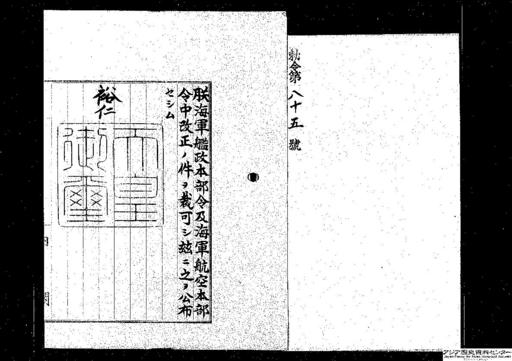 勅令第八十五號
朕海軍艦政本部令及海軍航空本部
令中改正ノ件ヲ裁可シ玆ニ之ヲ公布
セシム
裕仁
天皇
御璽
内閣
アジア歴史資料センター